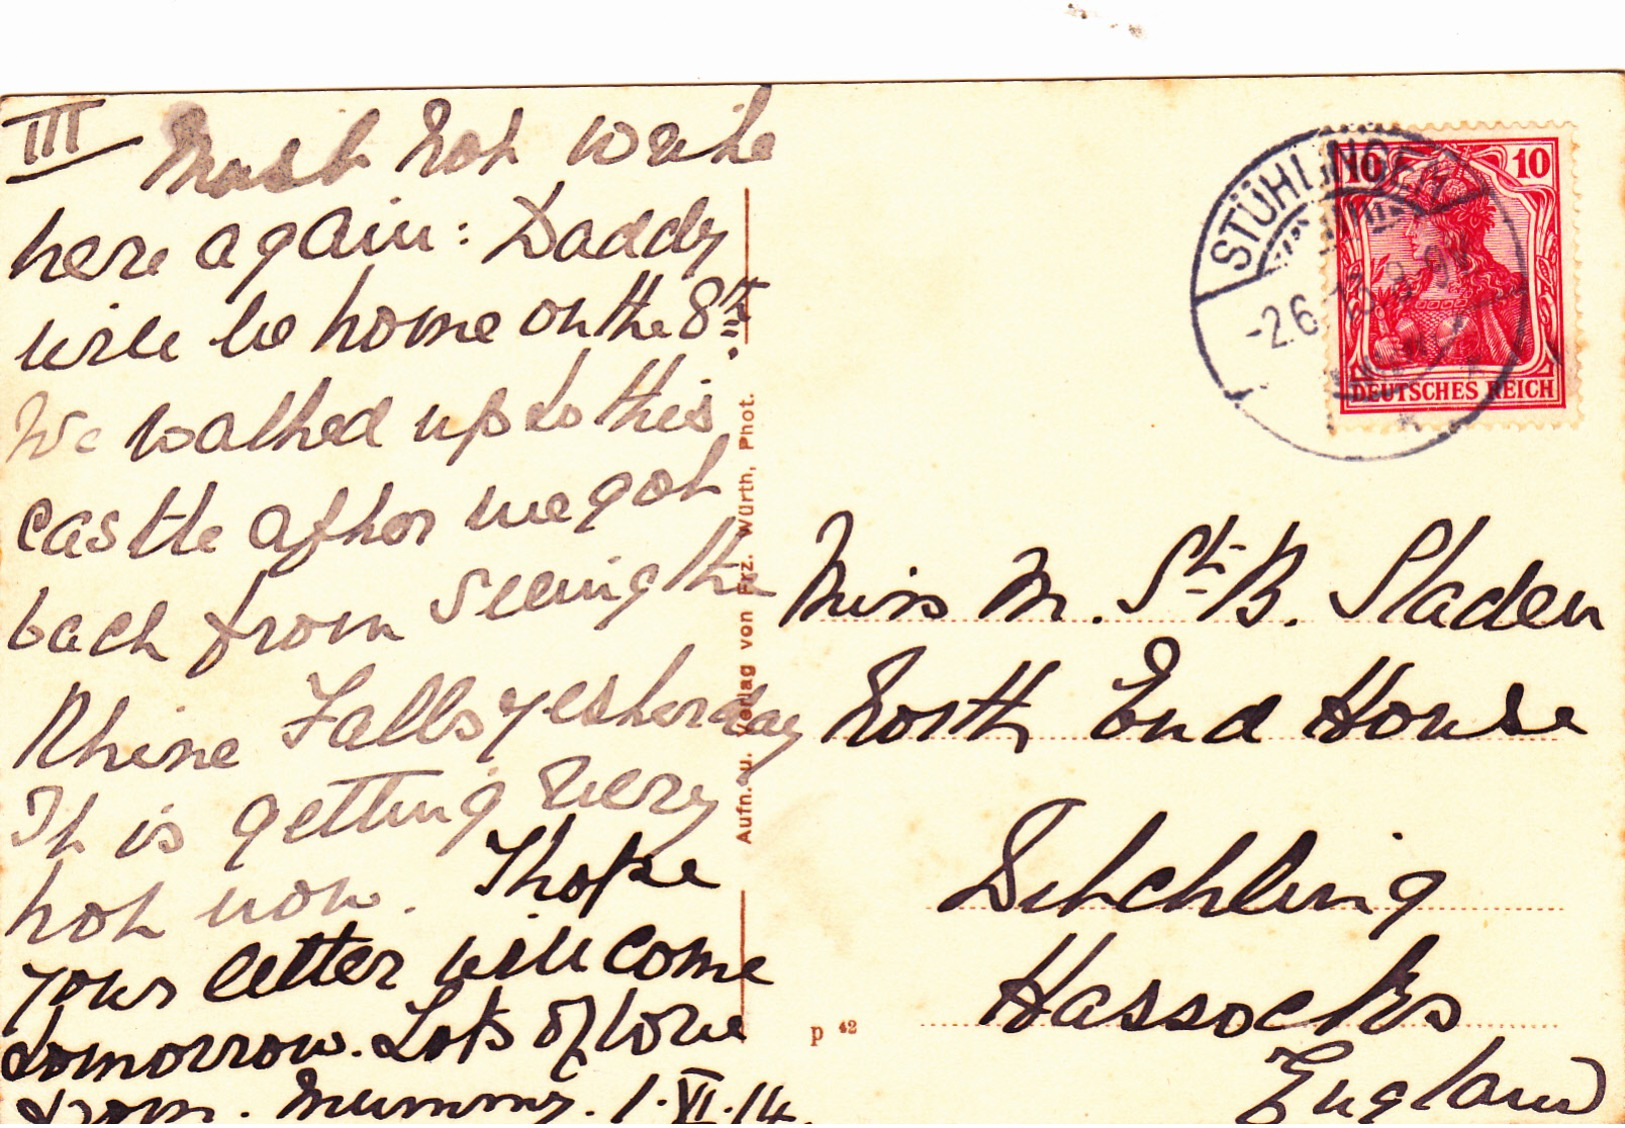 III Must not write
here again: Daddy
will be home on the 8th.
We walked up to this
castle after we got
back from seeing the
Rhine Falls yesterday
It is getting very
hot now. I hope
your letter will come
tomorrow. Lots of love
from. Mummy. 1.VI.14.
Aufn. u. Verlag von Frz. Würth, Phot.
p 42
STÜHLINGEN
-2.6.
10 10
DEUTSCHES REICH
Miss M. St. B. Sladen
North End House
Ditchling
Hassocks
England